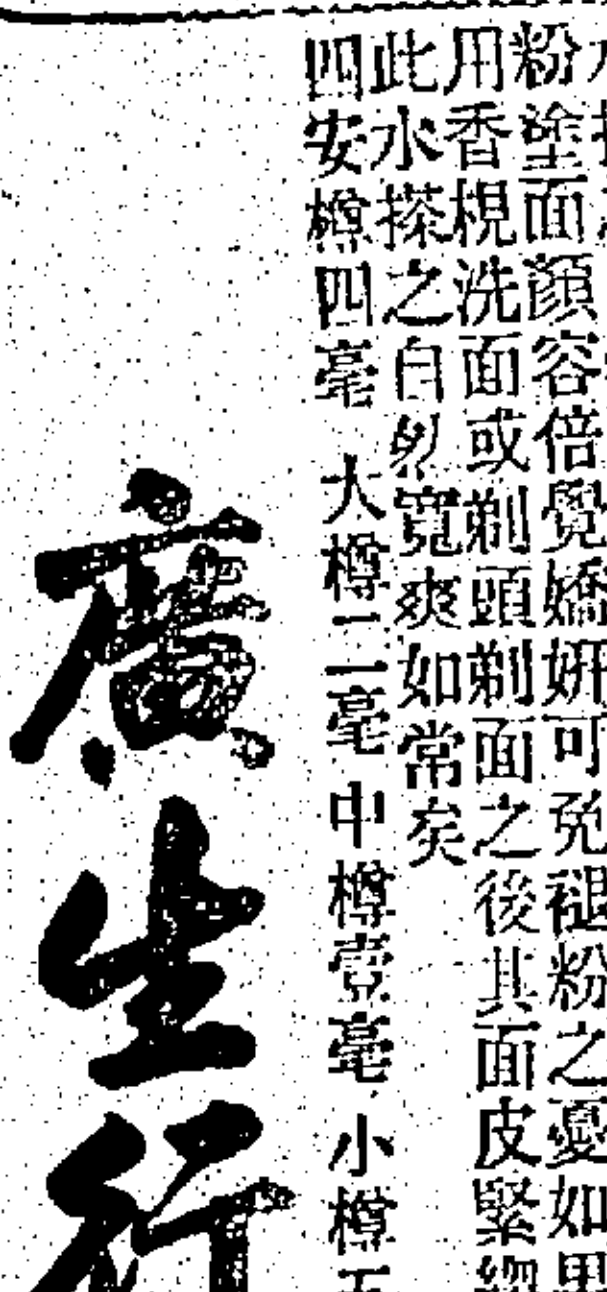 粉塗面顏容倍覺嬌妍可免褪粉之憂如
用香梘洗面或剃頭剃面之後其面皮緊
此水搽之自然寬爽如常矣
四安樽四毫 大樽二毫 中樽壹毫 小樽五
廣生行